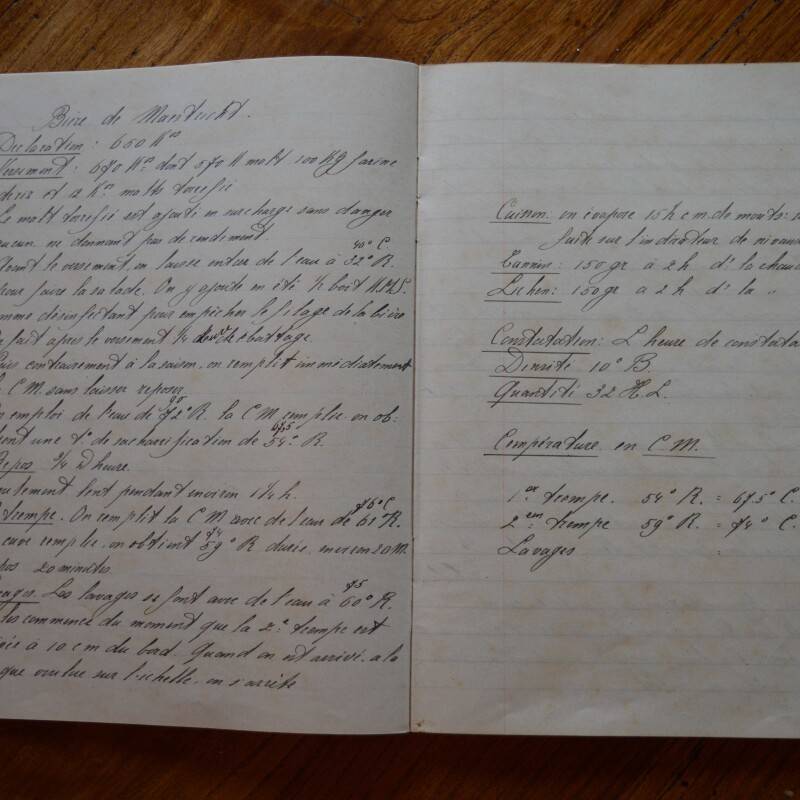 Bière de Maestricht.
Déclaration : 650 Kos
Versement : 670 Kos dont 570 K malt 100 Kg farine
de riz et 12 Kos malt torréfié
Le malt torréfié est ajouté en surcharge sans danger
aucun ne donnant pas de rendement.
Avant le versement, on laisse entrer de l'eau à 32° R. 40° C
pour faire la salade. On y ajoute en été ½ boît
comme désinfectant pour empêcher le filage de la bière
On fait après le versement ½ débattage.
Puis contrairement à la saison, on remplit immédiatement
la C M. sans laisser reposer.
En emploi de l'eau de 72° R. 90 la C M remplie on ob-
tient une t° de sacharification de 54° R. 67,5
Repos ¾ D'heure.
Soutement lent pendant environ 1¼ h.
trempe. On remplit la C M avec de l'eau de 61° R. 76° C
cuve remplie, on obtient 59° R 74 durée environ 20 M
repos 20 minutes.
Lavages. Les lavages se font avec de l'eau à 60° R. 75
commence du moment que la 2e trempe est
à 10 cm du bord. Quand on est arrivé à la
que voulue sur l'échelle, on s'arrête
Cuisson : on évapore 15 h c m. de moûts :
suite sur l'indicateur de niveau
Tannin : 150 gr à 2 h d. la chaud
Lichen : 150 gr à 2 h d. la "
Constatation : L'heure de constata
Densité 10° B.
Quantité 32 H L.
Température en C. M.
1er trempe. 54° R. = 67.5° C.
2em trempe 59° R. = 74° C.
Lavages :